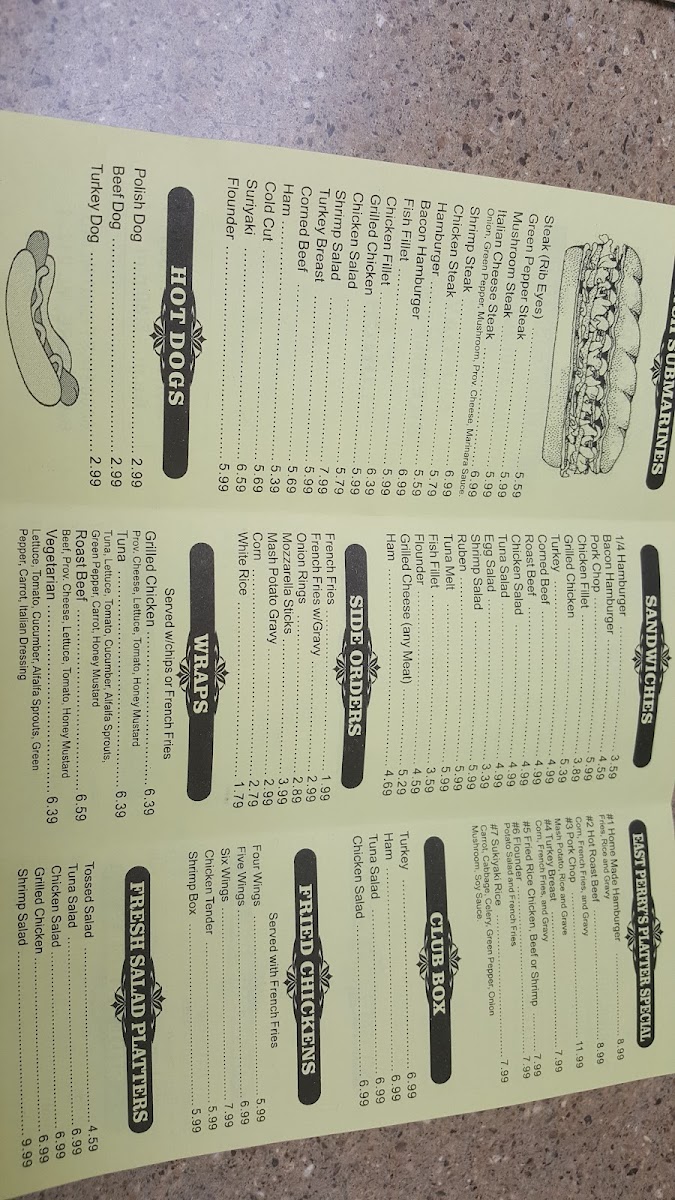 SUBMARINES
Steak (Rib Eyes) 5.59
Green Pepper Steak 5.99
Mushroom Steak 5.99
Italian Cheese Steak 6.99
Onion, Green Pepper, Mushroom, Prov. Cheese, Marinara Sauce,
Shrimp Steak 6.99
Chicken Steak 5.79
Hamburger 5.59
Bacon Hamburger 6.99
Fish Fillet 5.99
Chicken Fillet 6.39
Grilled Chicken 5.99
Chicken Salad 5.79
Shrimp Salad 7.99
Turkey Breast 5.99
Corned Beef 5.69
Ham 5.39
Cold Cut 5.69
Suriyaki 6.59
Flounder 5.99
HOT DOGS
Polish Dog 2.99
Beef Dog 2.99
Turkey Dog 2.99
SANDWICHES
1/4 Hamburger 3.59
Bacon Hamburger 4.59
Pork Chop 5.99
Chicken Fillet 3.89
Grilled Chicken 5.39
Turkey 4.99
Corned Beef 4.99
Roast Beef 4.99
Chicken Salad 4.99
Tuna Salad 4.99
Egg Salad 3.39
Shrimp Salad 5.99
Ruben 5.99
Tuna Melt 5.99
Fish Fillet 3.59
Flounder 4.59
Grilled Cheese (any Meat) 5.29
Ham 4.69
SIDE ORDERS
French Fries 1.99
French Fries w/Gravy 2.99
Onion Rings 2.89
Mozzarella Sticks 3.99
Mash Potato Gravy 2.99
Corn 2.79
White Rice 1.79
WRAPS
Served w/chips or French Fries
Grilled Chicken 6.39
Prov. Cheese, Lettuce, Tomato, Honey Mustard
Tuna 6.39
Tuna, Lettuce, Tomato, Cucumber, Alfalfa Sprouts,
Green Pepper, Carrot, Honey Mustard
Roast Beef 6.59
Beef, Prov. Cheese, Lettuce, Tomato, Honey Mustard
Vegetarian 6.39
Lettuce, Tomato, Cucumber, Alfalfa Sprouts, Green
Pepper, Carrot, Italian Dressing
EAST PERRY'S PLATTER SPECIAL
#1 Home Made Hamburger 8.99
Fries, Rice and Gravy
#2 Hot Roast Beef 8.99
Corn, French Fries, and Gravy
#3 Pork Chop 11.99
Mash Potato, Rice and Grave
#4 Turkey Breast 7.99
Corn, French Fries, and Gravy
#5 Fried Rice Chicken, Beef or Shrimp 7.99
#6 Flounder 7.99
Potato Salad and French Fries
#7 Sukiyaki Rice 7.99
Carrot, Cabbage, Celery, Green Pepper, Onion
Mushroom, Soy Sauce
CLUB BOX
Turkey 6.99
Ham 6.99
Tuna Salad 6.99
Chicken Salad 6.99
FRIED CHICKENS
Served with French Fries
Four Wings 5.99
Five Wings 6.99
Six Wings 7.99
Chicken Tender 5.99
Shrimp Box 5.99
FRESH SALAD PLATTERS
Tossed Salad 4.59
Tuna Salad 6.99
Chicken Salad 6.99
Grilled Chicken 6.99
Shrimp Salad 9.99